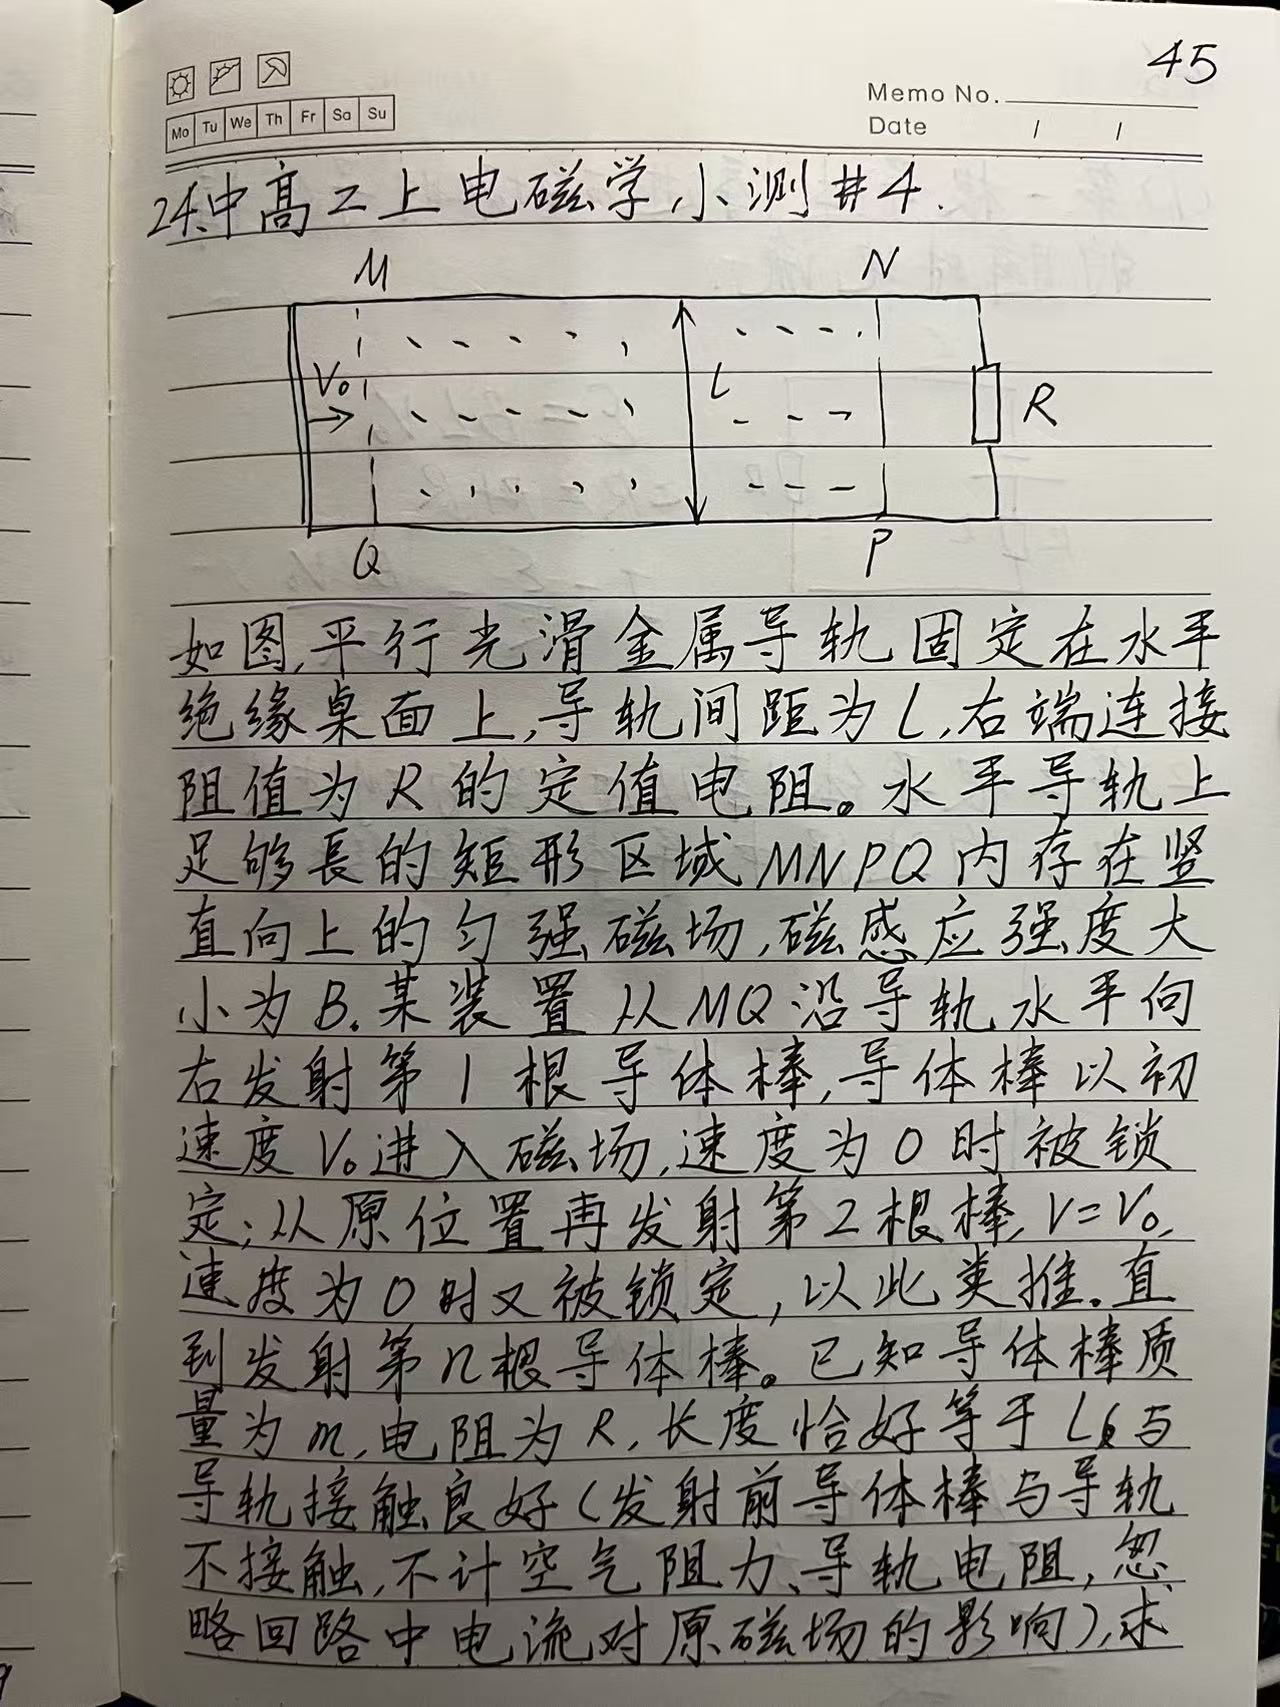 45
Memo No.
Mo Tu We Th Fr Sa Su
Date / /
24.中高二上电磁学小测#4.
M N
V₀ L R
Q P
如图,平行光滑金属导轨固定在水平
绝缘桌面上,导轨间距为L,右端连接
阻值为R的定值电阻。水平导轨上
足够長的矩形区域MNPQ内存在竖
直向上的匀强磁场,磁感应强度大
小为B.某装置从MQ沿导轨水平向
右发射第1根导体棒,导体棒以初
速度V₀进入磁场,速度为0时被锁
定;从原位置再发射第2根棒,V=V₀,
速度为0时又被锁定,以此类推.直
到发射第n根导体棒。已知导体棒质
量为m,电阻为R,长度恰好等于L,与
导轨接触良好(发射前导体棒与导轨
不接触,不计空气阻力、导轨电阻,忽
略回路中电流对原磁场的影响),求